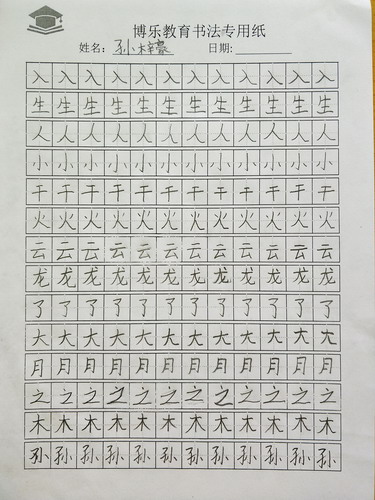 博乐教育书法专用纸
姓名：孙梓豪 日期:
入入入入入入入入入入入入
生生生生生生生生生生生生
人人人人人人人人人人人人
小小小小小小小小小小小小
干干干干干干干干干干干干
火火火火火火火火火火火火
云云云云云云云云云云云云
龙龙龙龙龙龙龙龙龙龙龙龙
了了了了了了了了了了了了
大大大大大大大大大大大大
月月月月月月月月月月月月
之之之之之之之之之之之之
木木木木木木木木木木木木
孙孙孙孙孙孙孙孙孙孙孙孙